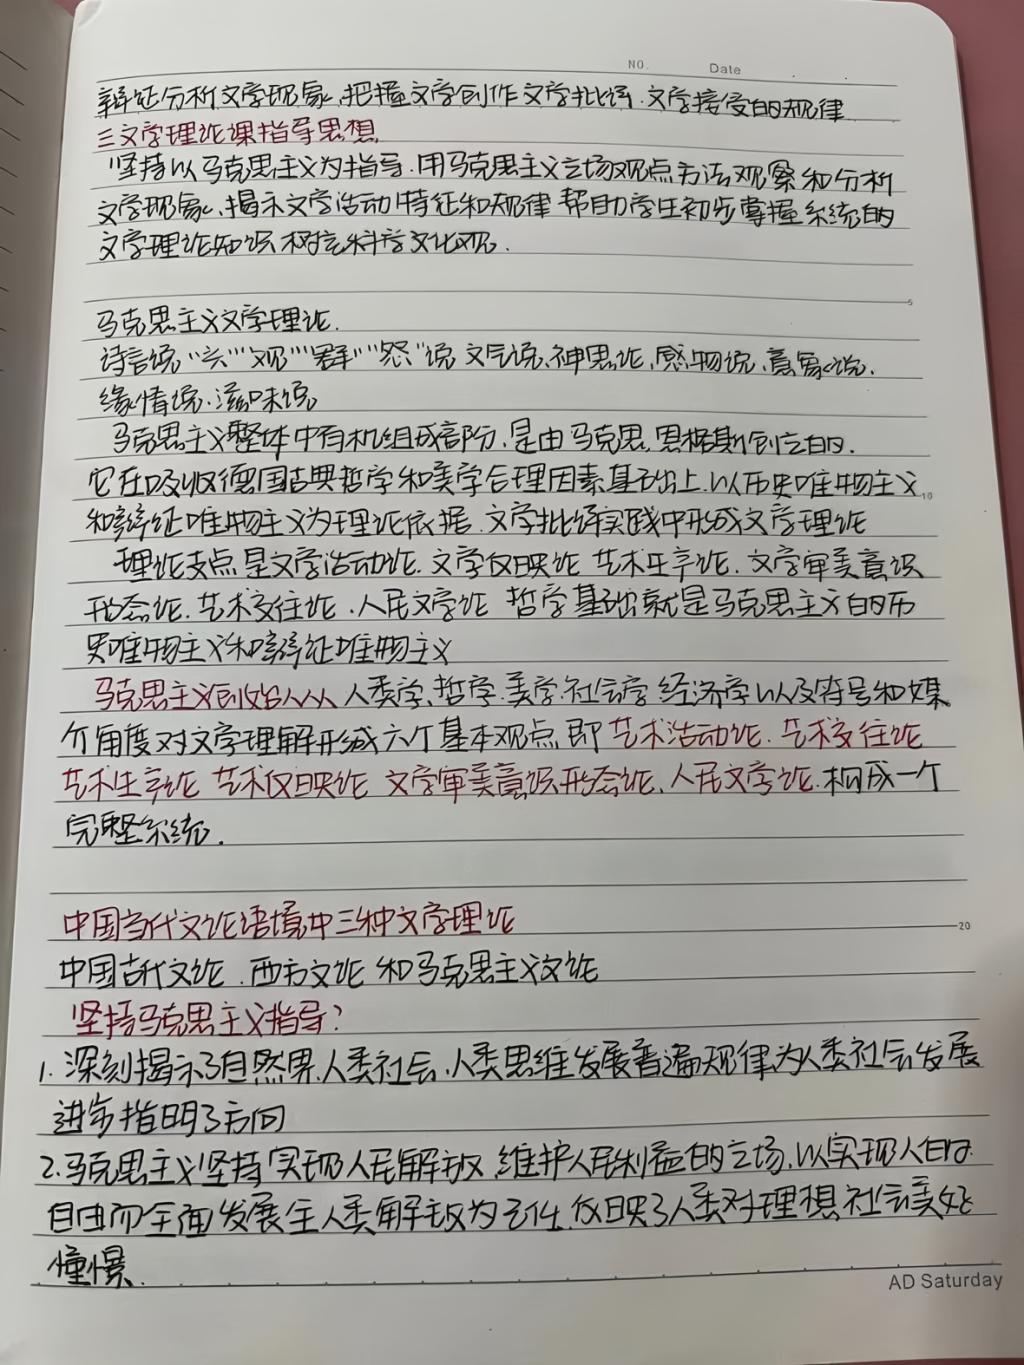 NO. Date
辩证分析文学现象,把握文学创作文学批评.文学接受的规律
三文学理论课指导思想
坚持以马克思主义为指导.用马克思主义立场观点方法观察和分析
文学现象,揭示文学活动特征和规律 帮助学生初步掌握系统的
文学理论知识 树立科学文化观.
5
马克思主义文学理论.
诗言说“兴”“观”“群”“怨”说 文气说.神思论.感物说.意象说.
缘情说.滋味说
马克思主义整体中有机组成部分.是由马克思.恩格斯创立的.
它在吸收德国古典哲学和美学合理因素基础上.以历史唯物主义
10
和辩证唯物主义为理论依据.文学批评实践中形成文学理论
理论支点是文学活动论.文学反映论 艺术生产论.文学审美意识
形态论.艺术交往论.人民文学论 哲学基础就是马克思主义的历
史唯物主义和辩证唯物主义
马克思主义创始人从人类学.哲学.美学.社会学 经济学以及符号和媒
介角度对文学理解形成六个基本观点 即艺术活动论.艺术交往论
艺术生产论 艺术反映论 文学审美意识形态论.人民文学论.构成一个
完整系统.
中国当代文论语境中三种文学理论
20
中国古代文论.西方文论 和马克思主义文论
坚持马克思主义指导?
1.深刻揭示了自然界.人类社会.人类思维发展普遍规律为人类社会发展
进步指明了方向
2.马克思主义坚持实现人民解放 维护人民利益的立场.以实现人的
自由而全面发展全人类解放为己任.反映了人类对理想社会美好
憧憬.
AD Saturday